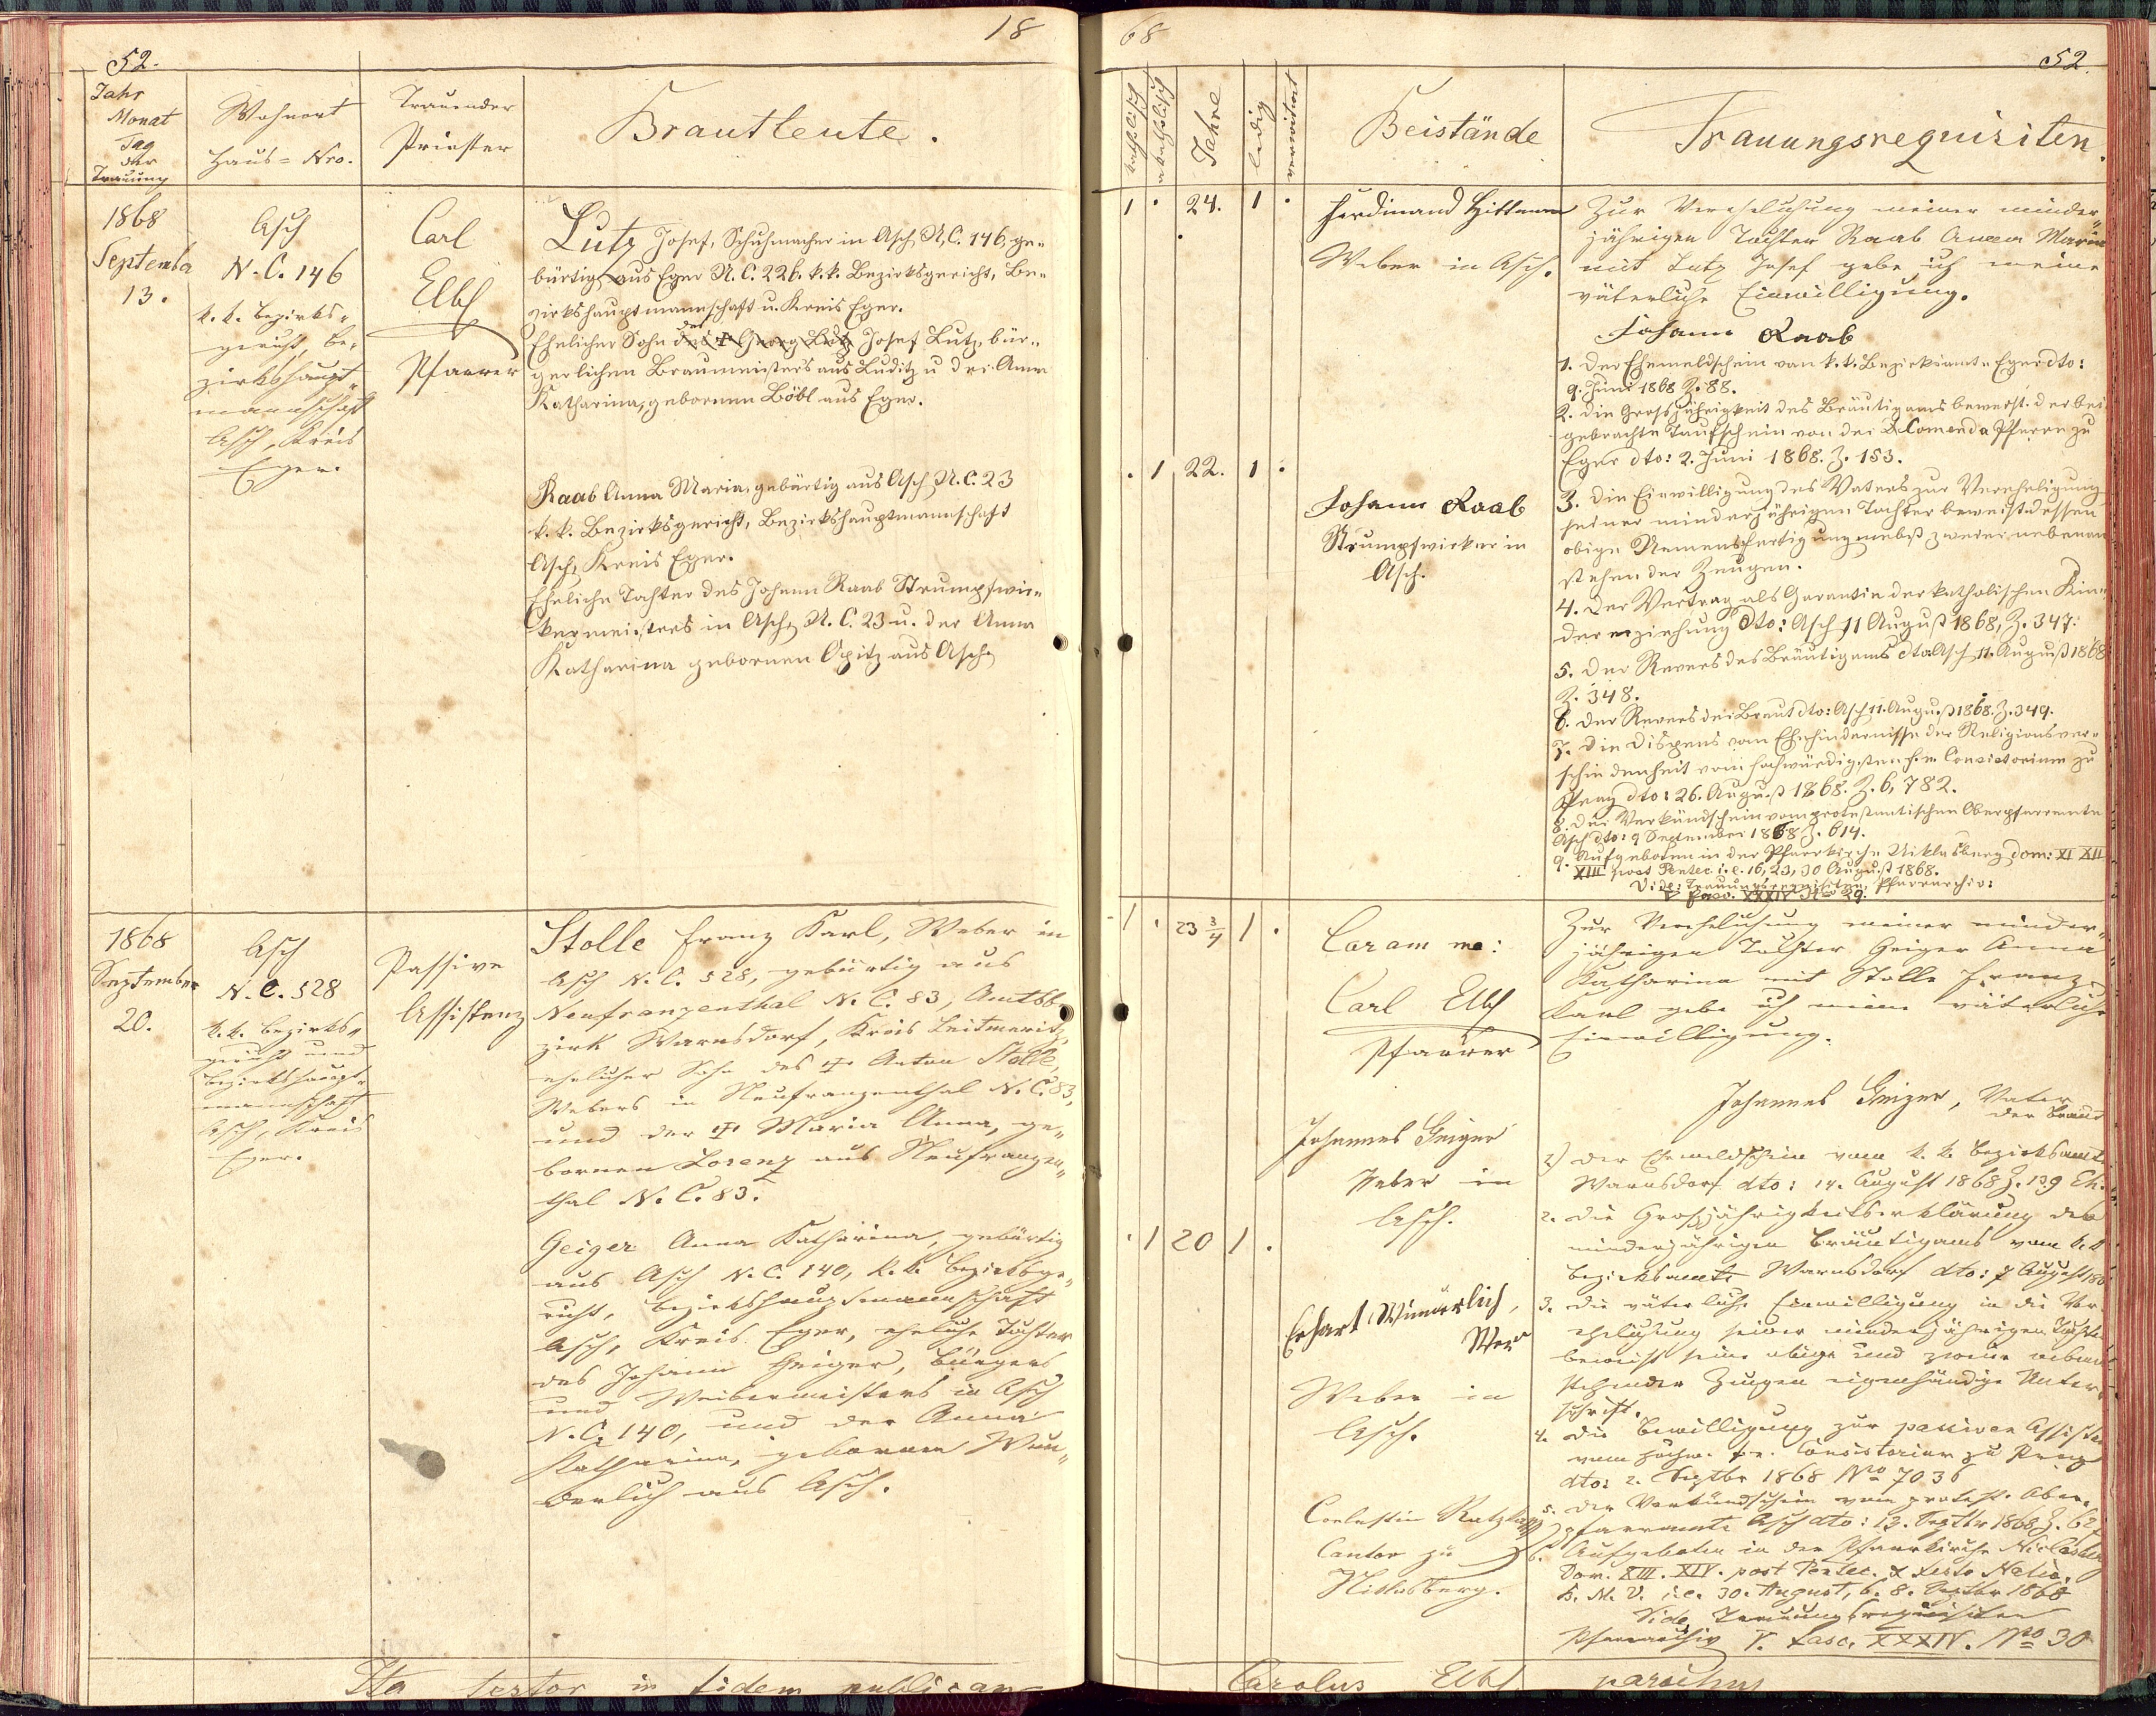 18
52.
Jahr
Monat
Tag
der
Trauung
Wohnort
Haus-Nro.
Trauender
Priester
Brautleute.
1868
September
13.
Asch
N.C. 146
k.k. Bezirks-
gericht, Be-
zirkshaupt-
mannschaft
Asch, Kreis
Eger.
Carl
Elbl
Pfarrer
Lutz Josef, Schuhmacher in Asch N.C. 146, ge-
bürtig aus Eger N.C. 226. k.k. Bezirksgericht, Be-
zirkshauptmannschaft u. Kreis Eger.
Ehelicher Sohn des Georg Lutz des Josef Lutz, bür-
gerlichen Braumeisters aus Luditz u der Anna
Katharina, gebornen Böbl aus Eger.
Raab Anna Maria, gebürtig aus Asch N.C. 23
k.k. Bezirksgericht, Bezirkshauptmannschaft
Asch, Kreis Eger.
Eheliche Tochter des Johann Raab Strumpfwir-
kermeisters in Asch, N.C. 23 u. der Anna
Katharina gebornen Opitz aus Asch.
1868
September
20.
Asch
N.C. 528
k.k. Bezirks-
gericht und
Bezirkshaupt-
mannschaft
Asch, Kreis
Eger.
Passive
Assistenz
Stolle Franz Karl, Weber in
Asch N.C. 528, gebürtig aus
Neufranzenthal N.C. 83, Amtsbe-
zirk Warnsdorf, Kreis Leitmeritz,
ehelicher Sohn des † Anton Stolle,
Webers in Neufranzenthal N.C. 83,
und der † Maria Anna, ge-
bornen Lorenz aus Neufranzen-
thal N.C. 83.
Geiger Anna Katharina, gebürtig
aus Asch N.C. 140, k.k. Bezirksge-
richt, Bezirkshauptmannschaft
Asch, Kreis Eger, eheliche Tochter
des Johann Geiger, Bürgers
und Webermeisters in Asch
N.C. 140, und der Anna
Katharina, gebornen Wun-
derlich aus Asch.
Ita testor in fidem publicam
68
52.
katholisch
akatholisch
Jahre
ledig
verwittwet
Beistände
Trauungsrequisiten.
1 . 24. 1 .
Ferdinand Hittmann
Weber in Asch.
. 1 22. 1 .
Johann Raab
Strumpfwirker in
Asch.
Zur Verehelichung meiner minder-
jährigen Tochter Raab Anna Maria
mit Lutz Josef gebe ich meine
väterliche Einwilligung.
Johann Raab
1. Der Ehemeldschein vom k.k. Bezirksamte Eger dto:
9. Juni 1868 Z. 88.
2. Die Grossjährigkeit des Bräutigams beweist der bei
gebrachte Taufschein von der Comenda Pfarre zu
Eger dto: 2. Juni 1868. Z. 153.
3. Die Einwilligung des Vaters zur Verehelichung
seiner minderjährigen Tochter beweist dessen
obige Namensfertigung nebst zweier nebenan
stehender Zeugen.
4. Der Vertrag als Garantie der katholischen Kin-
dererziehung dto: Asch 11 August 1868, Z. 347.
5. Der Revers des Bräutigams dto: Asch 11. August 1868
Z. 348.
6. Der Revers der Braut dto: Asch 11. August 1868. Z. 349.
7. Die Dispens vom Ehehindernisse der Religionsver-
schiedenheit vom hochwürdigsten f.e. Consistorium zu
Prag dto: 26. August 1868. Z. 6,782.
8. Der Verkündschein vom protestantischen Oberpfarramte
Asch dto: 9 September 1868 Z. 614.
9. Aufgeboten in der Pfarrkirche Niklasberg dom: XI XII
XIII post Pentec. i.e. 16, 23, 30 August 1868.
Vide: Trauungsrequisiten, Pfarrarchiv:
V Fasc. XXXIV No 29.
1 . 23 3/4 1 .
Coram me:
Carl Elbl
Pfarrer
Johannes Geiger
Weber in
Asch.
. 1 20 1 .
Erhart Wunderlich,
Weber in
Asch.
Coelestin
Cantor zu
Niklasberg.
Zur Verehelichung meiner minder-
jährigen Tochter Geiger Anna
Katharina mit Stolle Franz
Karl gebe ich meine väterliche
Einwilligung.
Johannes Geiger, Vater
der Braut
1) Der Ehemeldschein vom k.k. Bezirksamte
Warnsdorf dto: 14. August 1868 Z. 139 Eh.
2. Die Grossjährigkeitserklärung des
minderjährigen Bräutigams vom k.k.
Bezirksamte Warnsdorf dto: 7 August 186
3. Die väterliche Einwilligung in die Ver-
ehelichung seiner minderjährigen Tochter
beweist seine obige und zweier neben
stehender Zeugen eigenhändige Unter-
schrift.
4. Die Bewilligung zur passiven Assistenz
vom hochw. f.e. Consistorium zu Prag
dto: 2. Septbr 1868 No 7036
5. Der Verkündschein vom protest. Ober-
pfarramte Asch dto: 13. Septbr 1868 Z. 62
6. Aufgeboten in der Pfarrkirche Niclasberg
Dom. XIII. XIV. post Pentec. & festo Nativ.
B.M.V. i.e. 30. August, 6. 8. Septbr 1868
Vide Trauungsrequisiten
Pfarrarchiv V. Fasc. XXXIV. No 30
Carolus Elbl parochus